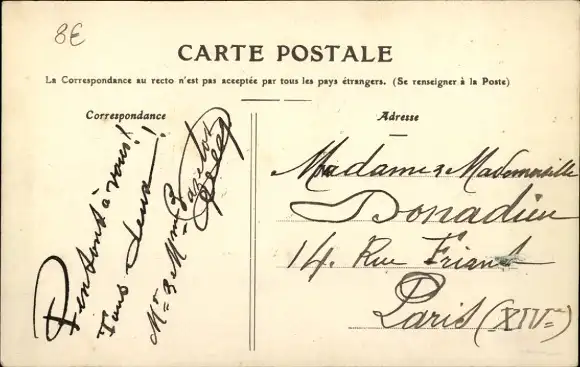 8€
CARTE POSTALE
La Correspondance au recto n'est pas acceptée par tous les pays étrangers. (Se renseigner à la Poste)
Correspondance
Pensons à vous!
Tous deux!
Mr & Mme
Adresse
Madame & Mademoiselle
Donadieu
14. Rue Friant
Paris (XIVe)